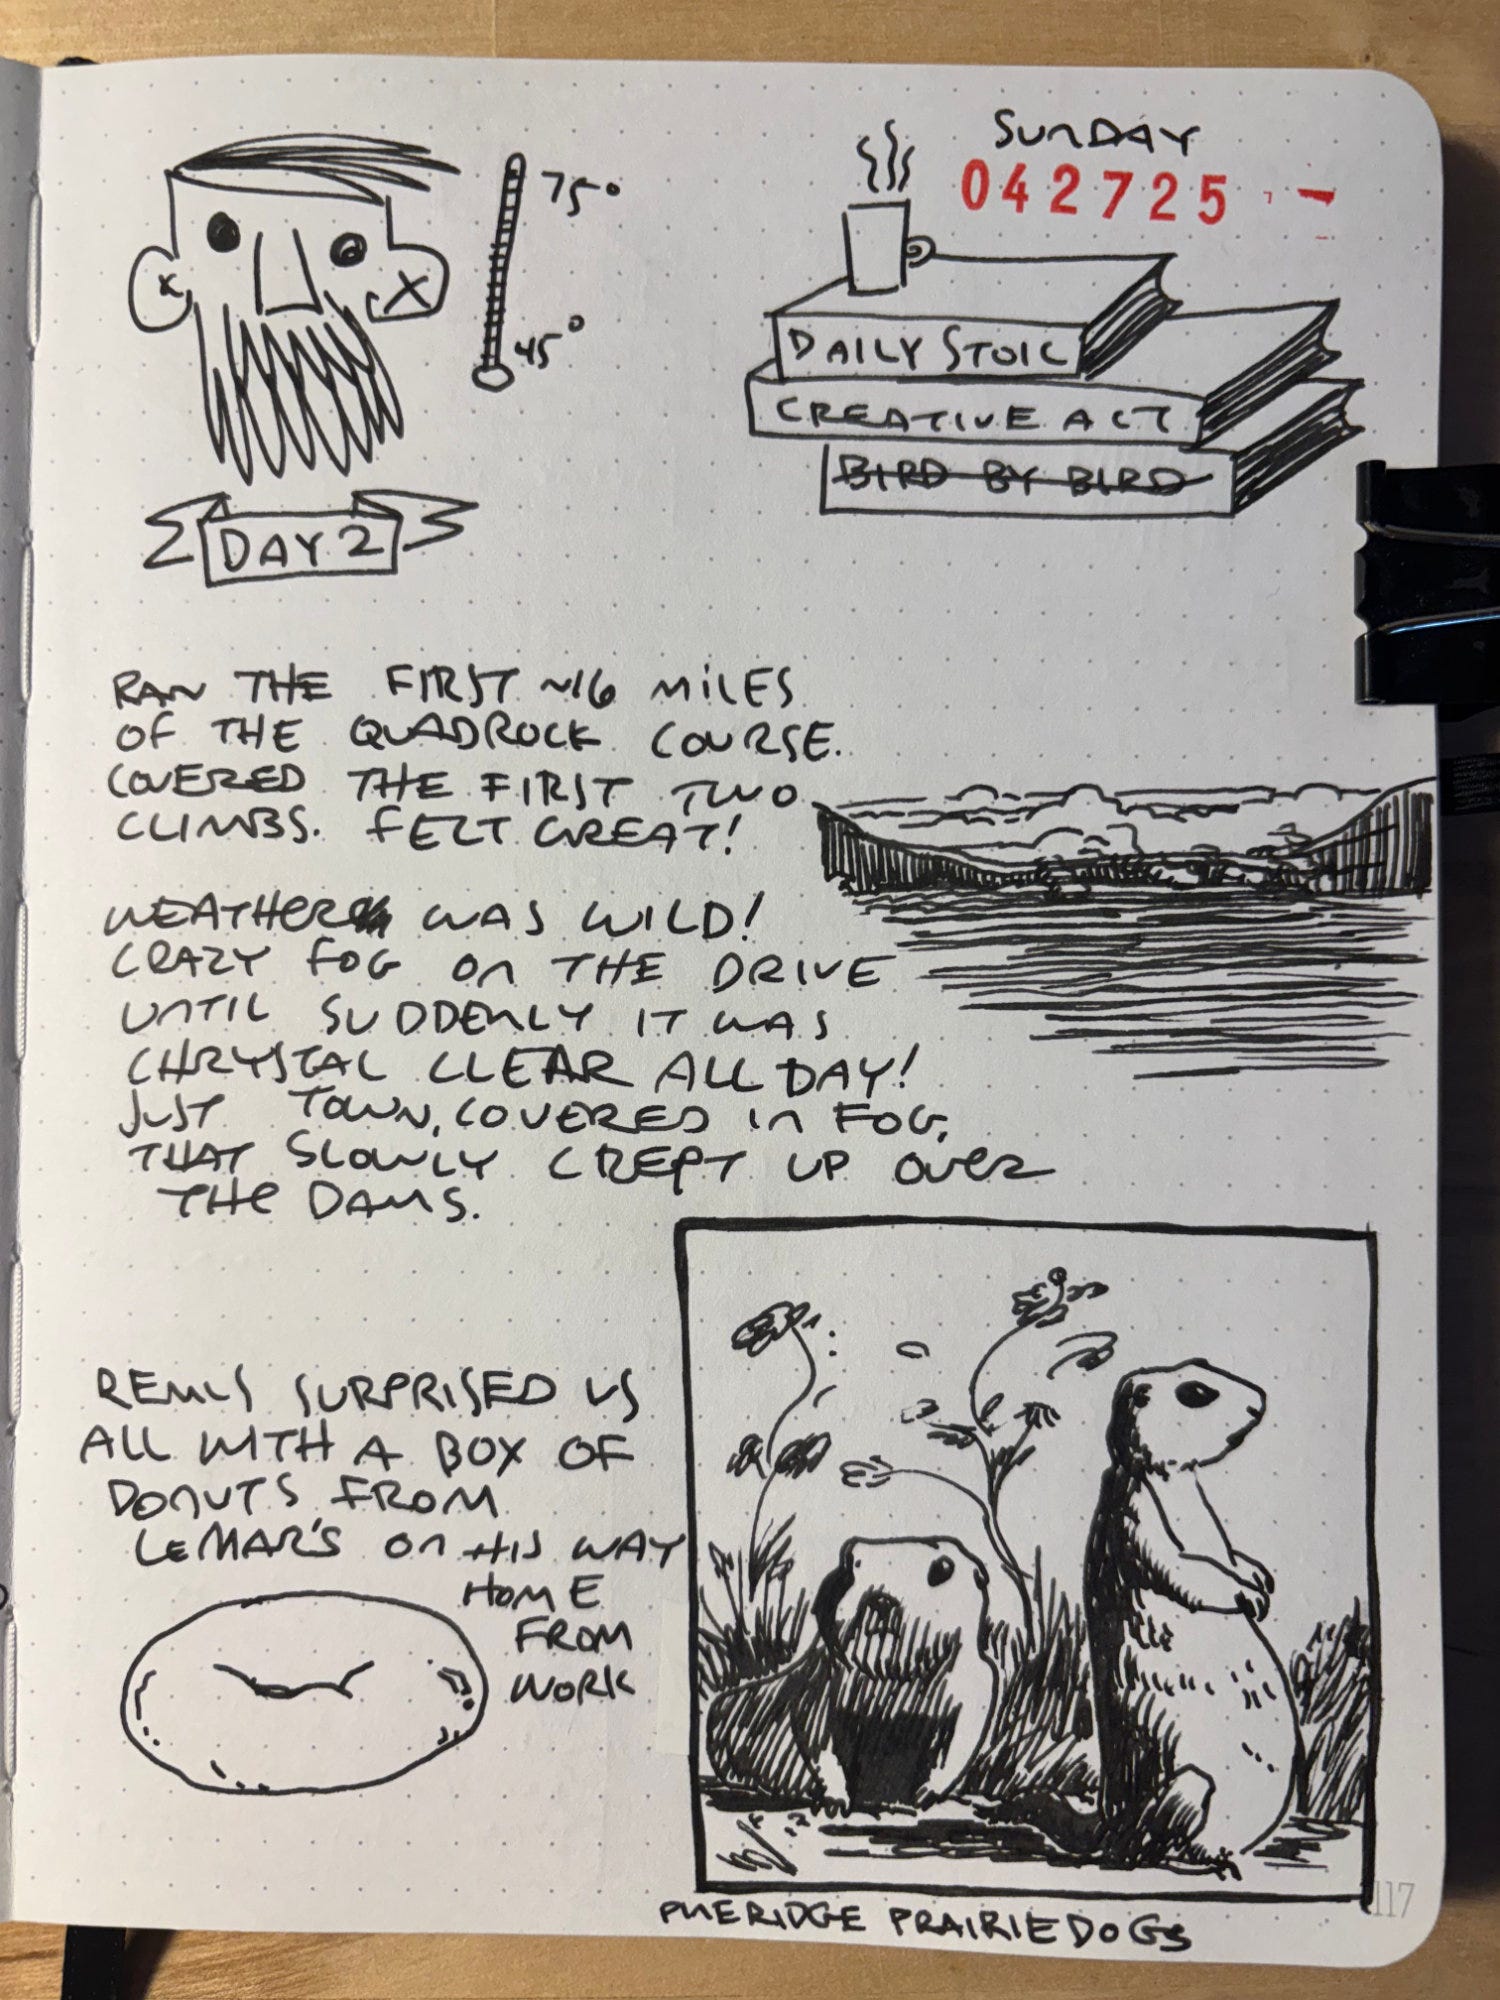 SUNDAY
042725
75°
45°
DAILY STOIC
CREATIVE ACT
BIRD BY BIRD
DAY 2
RAN THE FIRST ~16 MILES
OF THE QUADROCK COURSE.
COVERED THE FIRST TWO
CLIMBS. FELT GREAT!
WEATHER WAS WILD!
CRAZY FOG ON THE DRIVE
UNTIL SUDDENLY IT WAS
CHRYSTAL CLEAR ALL DAY!
JUST TOWN, COVERED IN FOG,
THAT SLOWLY CREPT UP OVER
THE DAMS.
SURPRISED US
ALL WITH A BOX OF
DONUTS FROM
LEMAR'S ON HIS WAY
HOME
FROM
WORK
PINERIDGE PRAIRIE DOGS
117